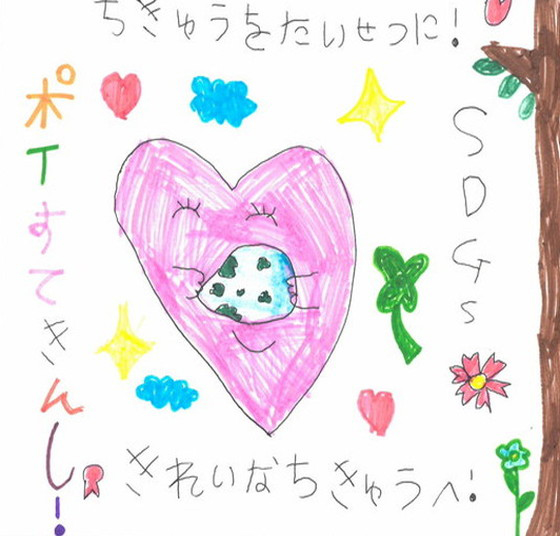 ちきゅうをたいせつに!
ポイすてきんし!
SDGs
きれいなちきゅうへ!